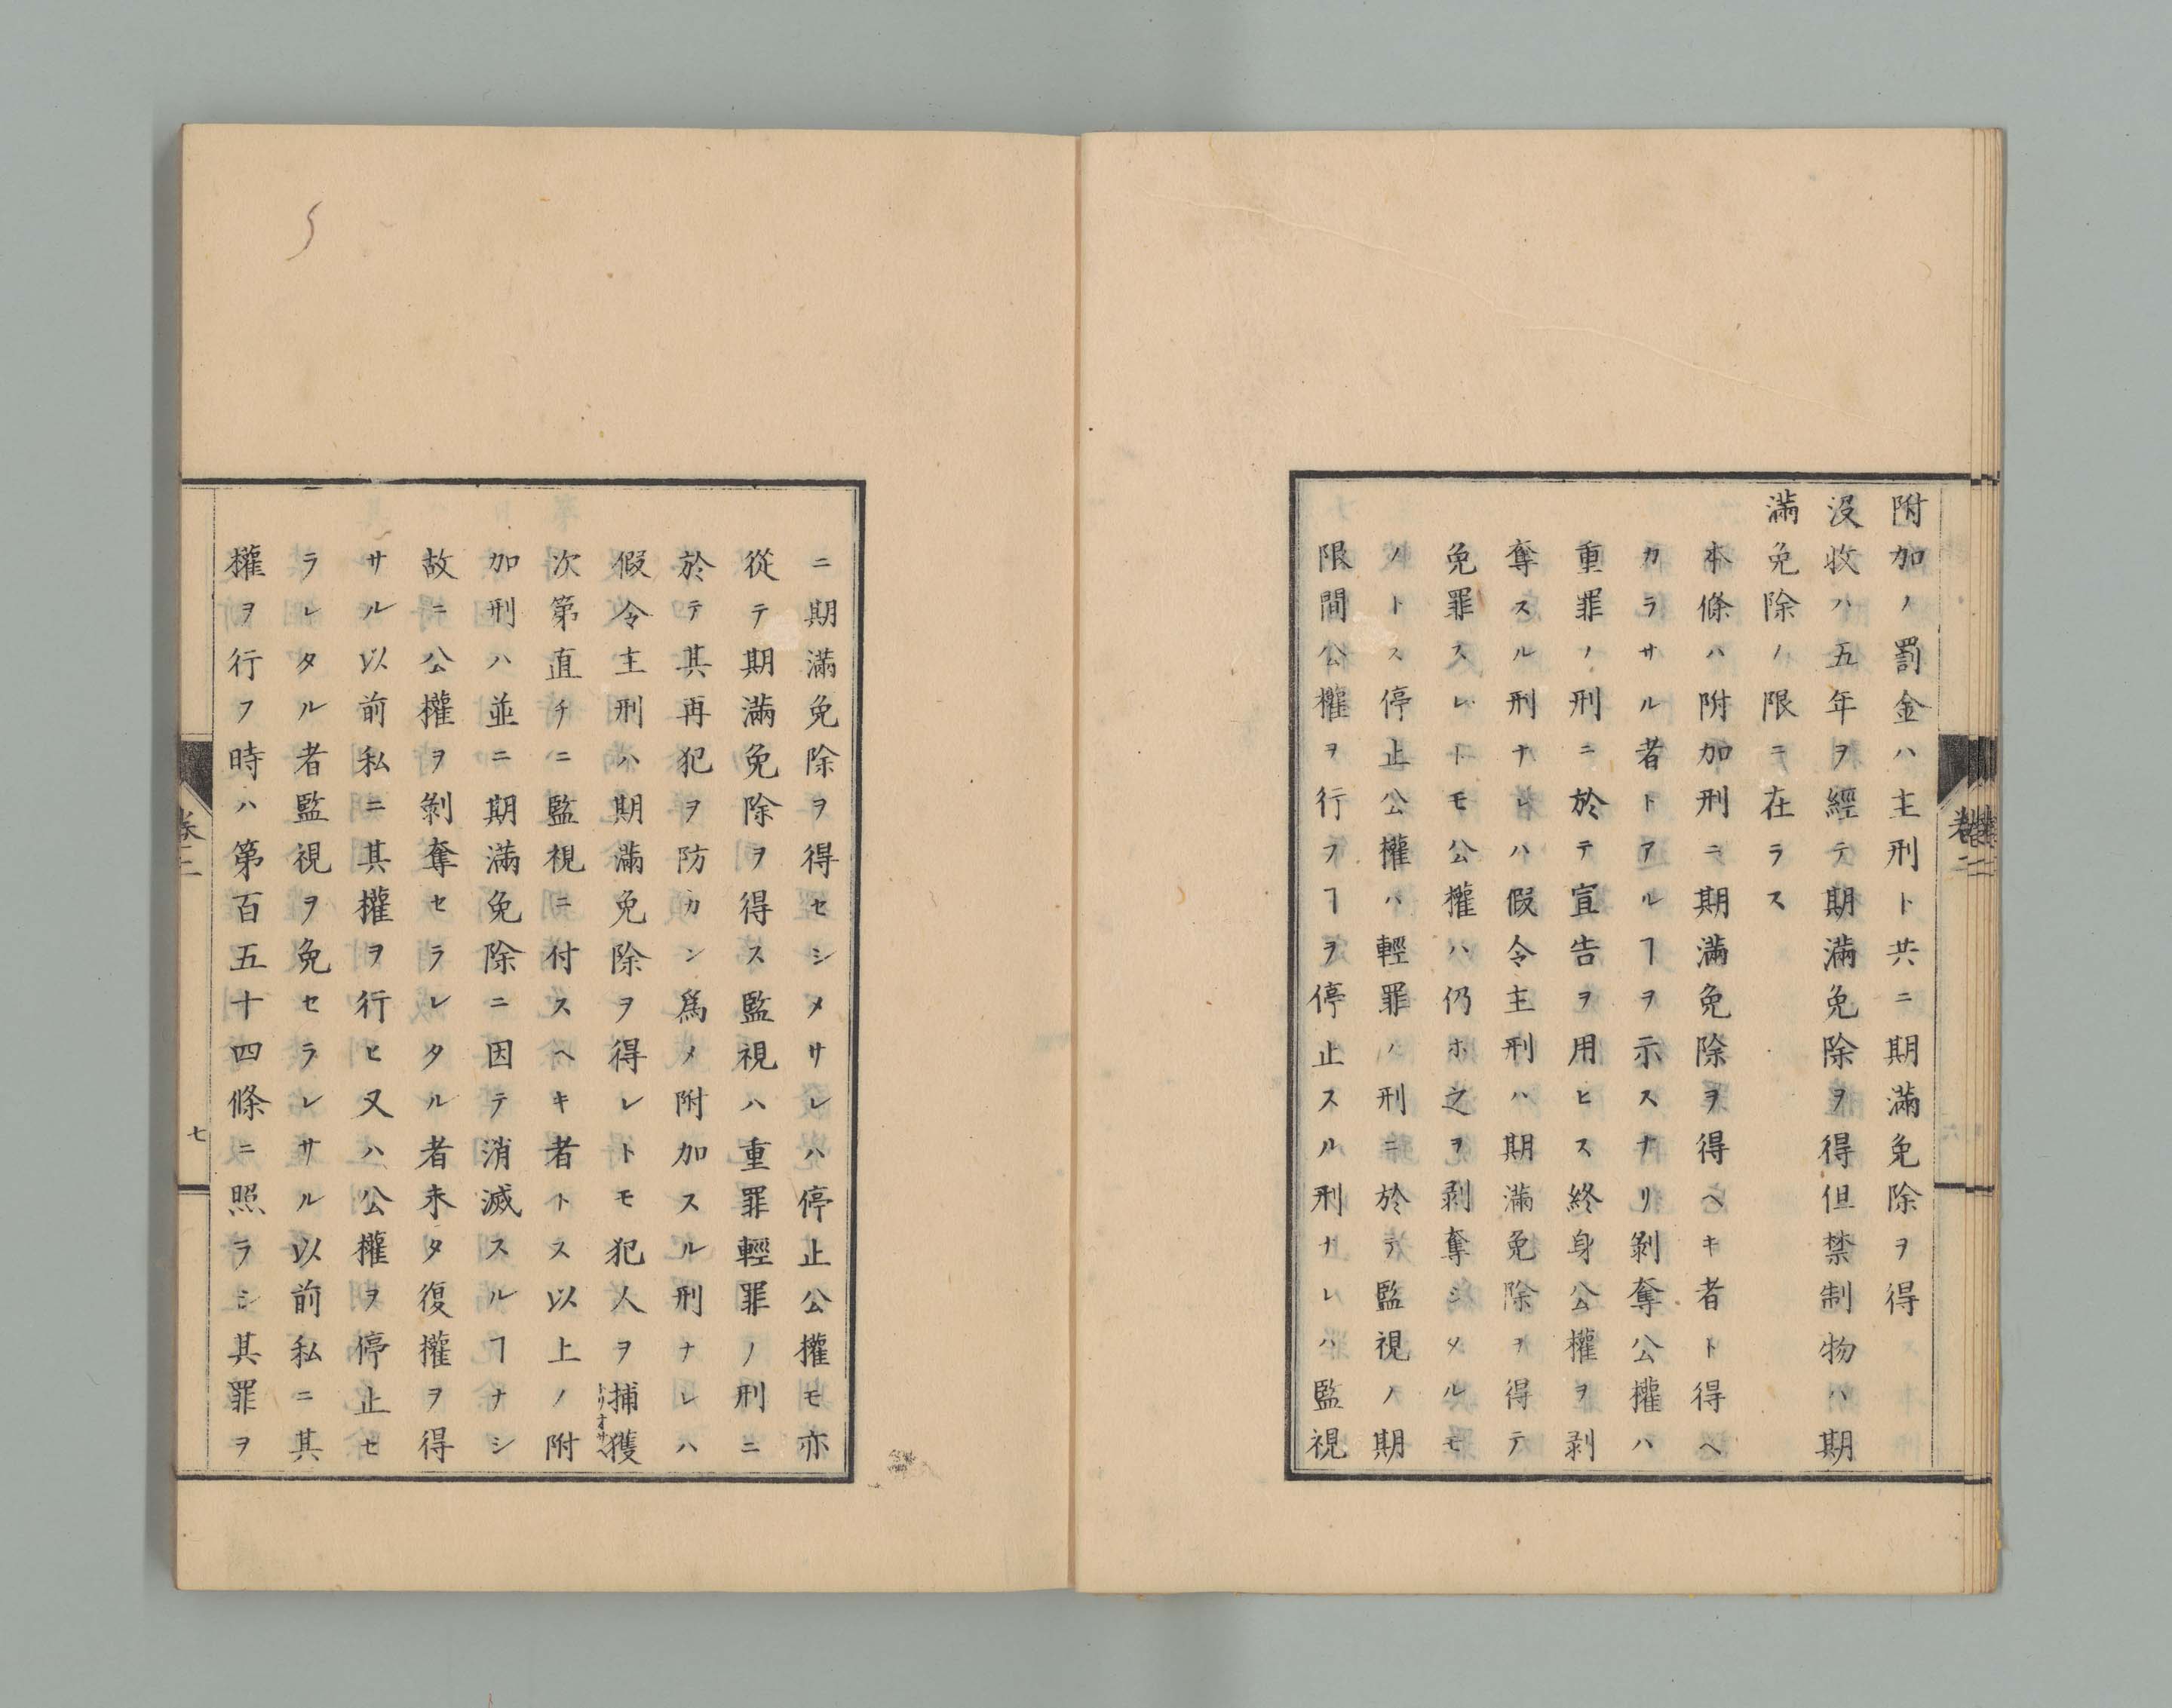 附加ノ罰金ハ主刑ト共ニ期滿免除ヲ得
沒收ハ五年ヲ經テ期滿免除ヲ得但禁制物ハ期
滿免除ノ限ニ在ラス
本條ハ附加刑ニ期滿免除ヲ得ヘキ者ト得ヘ
カラサル者トアルヿヲ示スナリ剝奪公權ハ
重罪ノ刑ニ於テ宣告ヲ用ヒス終身公權ヲ剥
奪スル刑ナレハ假令主刑ハ期滿免除ヲ得テ
免罪スレトモ公權ハ仍ホ之ヲ剥奪シメルモ
ノトス停止公權ハ輕罪ノ刑ニ於テ監視ノ期
限間公權ヲ行フヿヲ停止スル刑ナレハ監視
卷二
ニ期滿免除ヲ得セシメサレハ停止公權モ亦
從テ期滿免除ヲ得ス監視ハ重罪輕罪ノ刑ニ
於テ其再犯ヲ防カン爲メ附加スル刑ナレハ
假令主刑ハ期滿免除ヲ得レトモ犯人ヲ捕獲
トリオサヘ
次第直チニ監視ニ付スヘキ者トス以上ノ附
加刑ハ並ニ期滿免除ニ因テ消滅スルヿナシ
故ニ公權ヲ剝奪セラレタル者未タ復權ヲ得
サル以前私ニ其權ヲ行ヒ又ハ公權ヲ停止セ
ラレタル者監視ヲ免セラレサル以前私ニ其
權ヲ行フ時ハ第百五十四條ニ照ラシ其罪ヲ
卷二
七